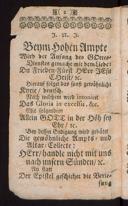 2
J. N. J.
Beym Hohen Ampte
Wird der Anfang des GOttes-
Dienstes gemachet mit dem Liede:
Du Frieden-Fürst HErr JEsu
CHrist/ ꝛc.
Hierauf folget das sonst gewöhnliche
Kyrie/ deutsch.
Nach welchem wird intoniret
Das Gloria in excelsis, &c.
Und folgendes
Allein GOTT in der Höh sey
Ehr/ ꝛc.
Bey dessen Endigung wird gebetet
Die gewöhnliche Ampts- und
Altar-Collecte:
HErr/ handle nicht mit uns
nach unsern Sünden/ ꝛc.
An statt
Der Epistel geschiehet die Verle-
sung